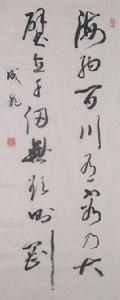 海納百川有容乃大
壁立千仞無欲則剛
成龍